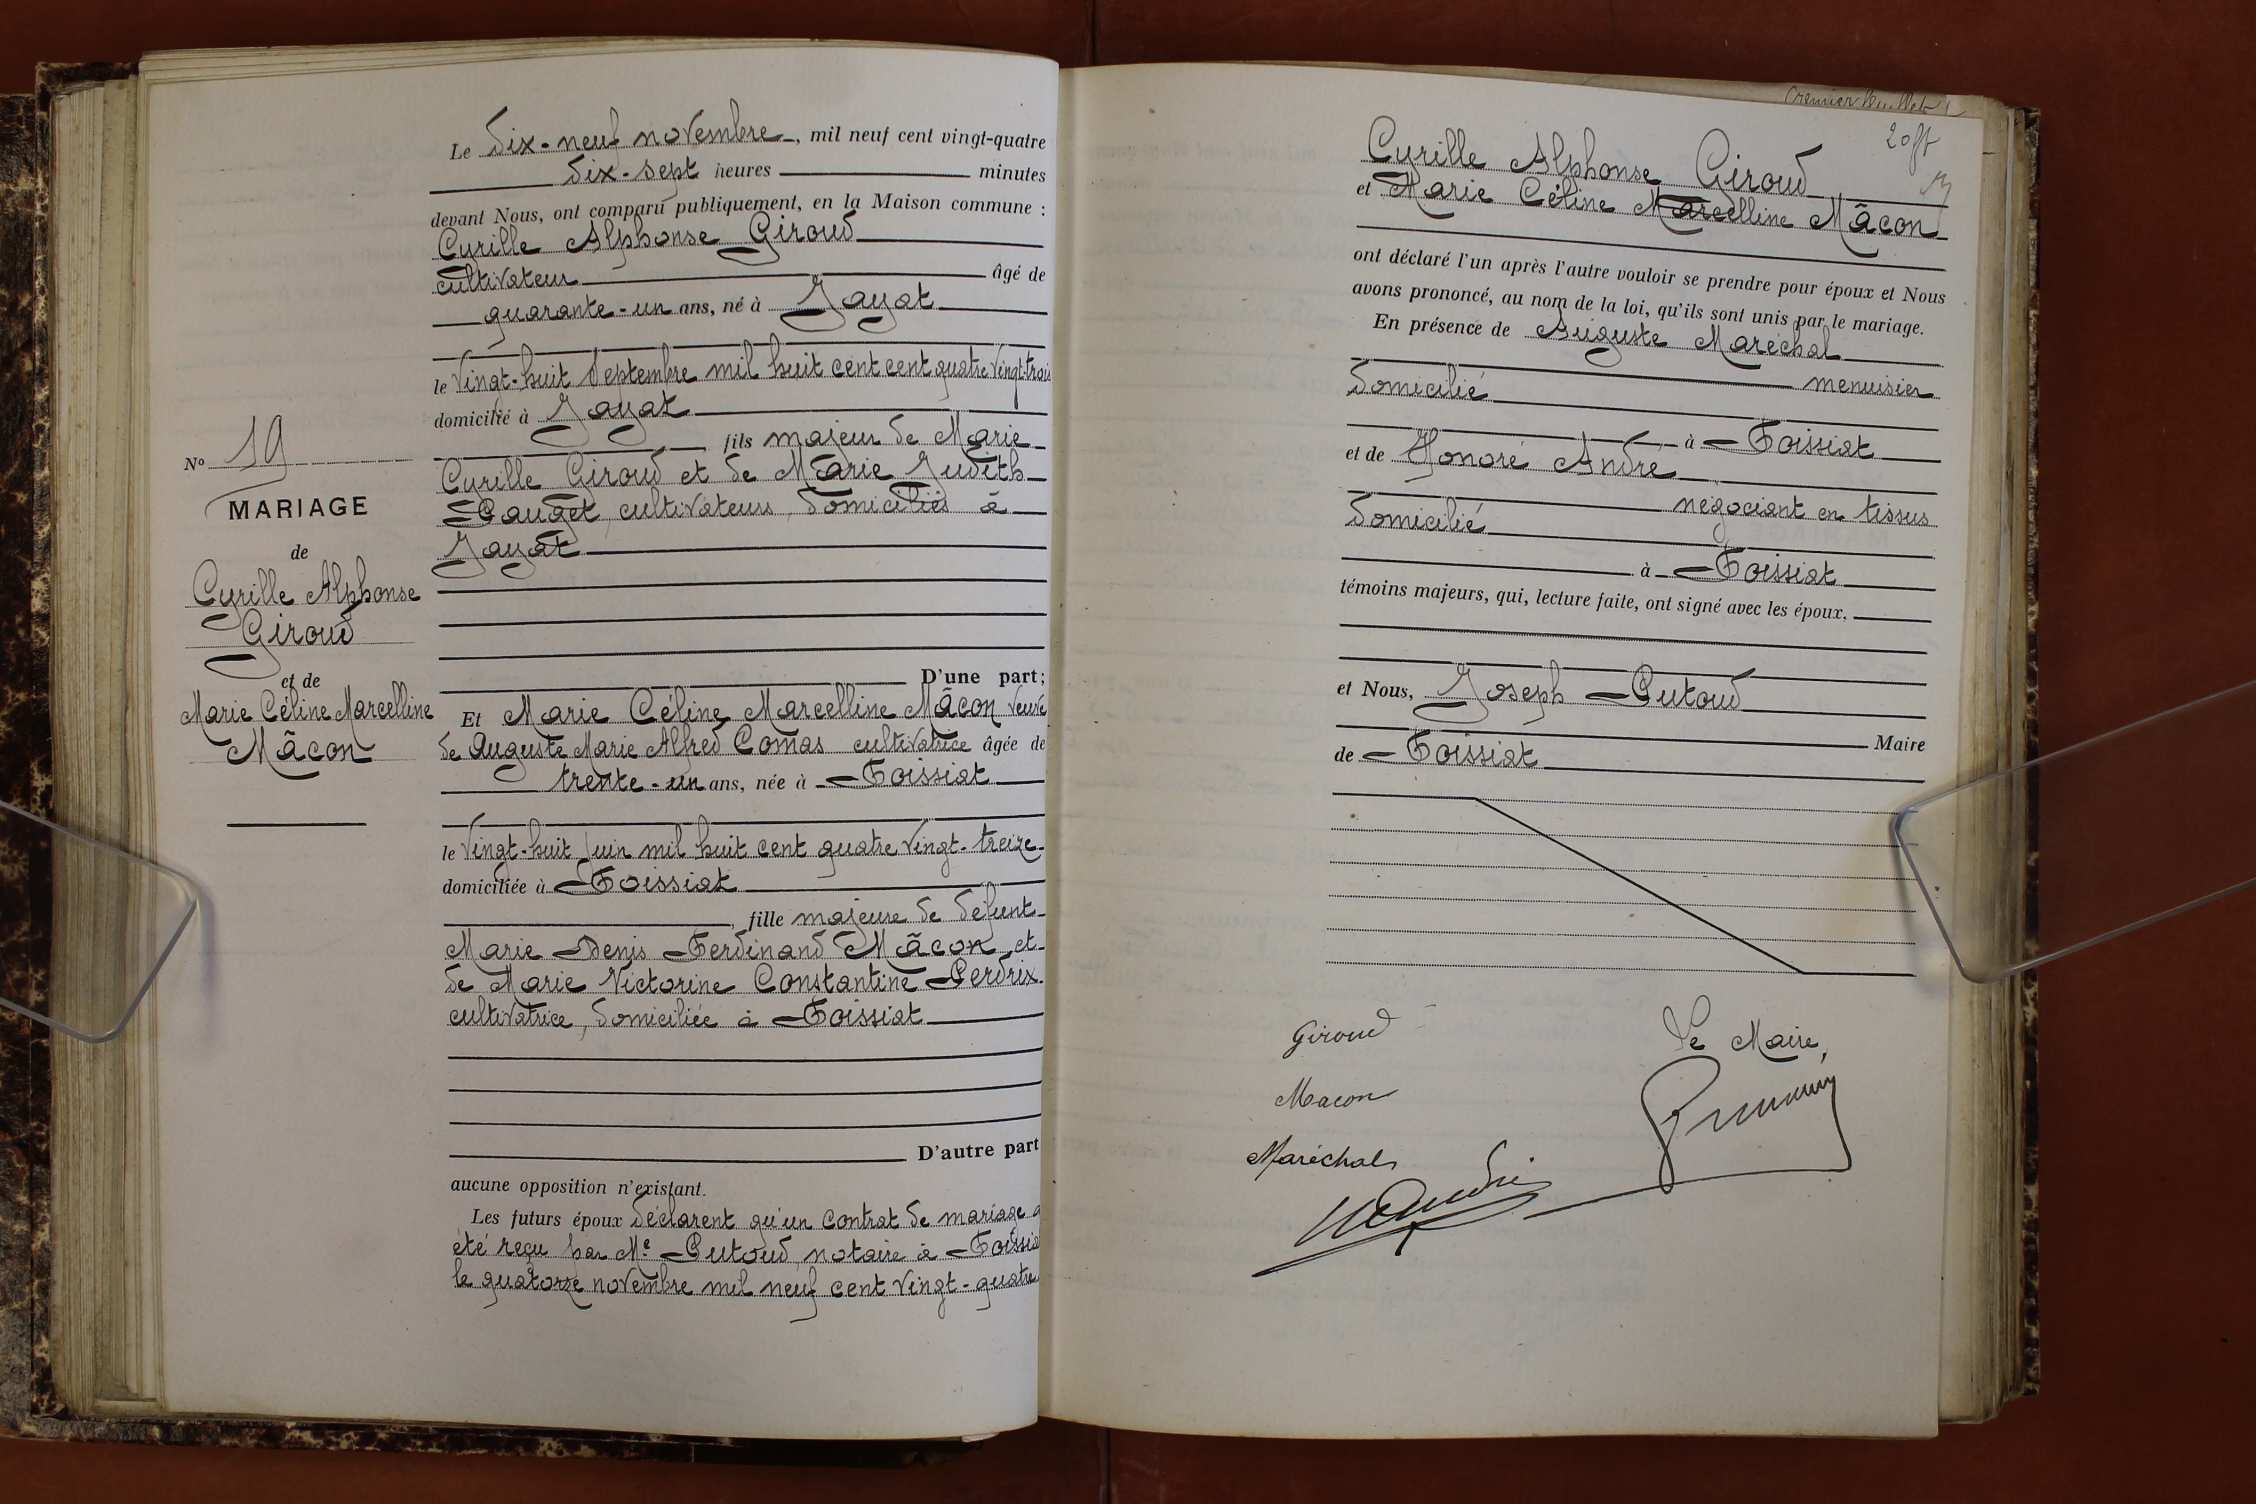 Le dix-neuf novembre, mil neuf cent vingt-quatre
dix-sept heures minutes
devant Nous, ont comparu publiquement, en la Maison commune :
Cyrille Alphonse Giroud
cultivateur âgé de
quarante-un ans, né à Jayat
le vingt-huit Septembre mil huit cent cent quatre vingt-trois
domicilié à Jayat
fils majeur de Marie
Cyrille Giroud et de Marie Judith
Pauget, cultivateurs, domiciliés à
Jayat
D'une part;
Nº 19
MARIAGE
de
Cyrille Alphonse
Giroud
et de
Marie Céline Marcelline
Mâcon
Et Marie Céline Marcelline Mâcon veuve
de Auguste Marie Alfred Comas cultivatrice âgée de
trente-un ans, née à Foissiat
le vingt-huit juin mil huit cent quatre vingt-treize
domiciliée à Foissiat
, fille majeure de défunt
Marie Denis Ferdinand Mâcon et
de Marie Victorine Constantine Perdrix
cultivatrice, domiciliée à Foissiat
D'autre part
aucune opposition n'existant.
Les futurs époux déclarent qu'un contrat de mariage a
été reçu par Me Putoud, notaire à Foissia
le quatorze novembre mil neuf cent vingt-quatre
Cyrille Alphonse Giroud
et Marie Céline Marcelline Mâcon
ont déclaré l'un après l'autre vouloir se prendre pour époux et Nous
avons prononcé, au nom de la loi, qu'ils sont unis par le mariage.
En présence de Auguste Maréchal
menuisier
domicilié
à Foissiat
et de Honoré André
négociant en tissus
domicilié
à Foissiat
témoins majeurs, qui, lecture faite, ont signé avec les époux.
et Nous, Joseph Putoud
Maire
de Foissiat
Giroud
Le Maire,
Macon
Maréchal